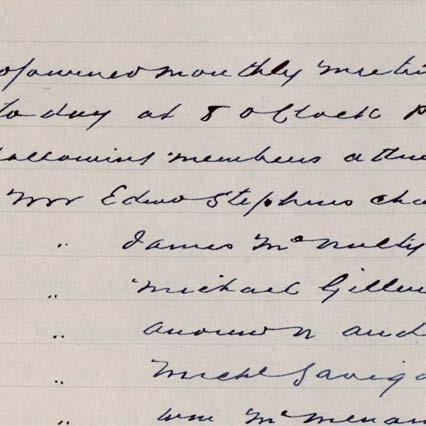 journed monthly meeti
to day at 8 oClock P
following members atte
Mr Edwd Stephens cha
" James McNulty
" Michael Gille
" and
" Michl Gavig
" Wm McMenam